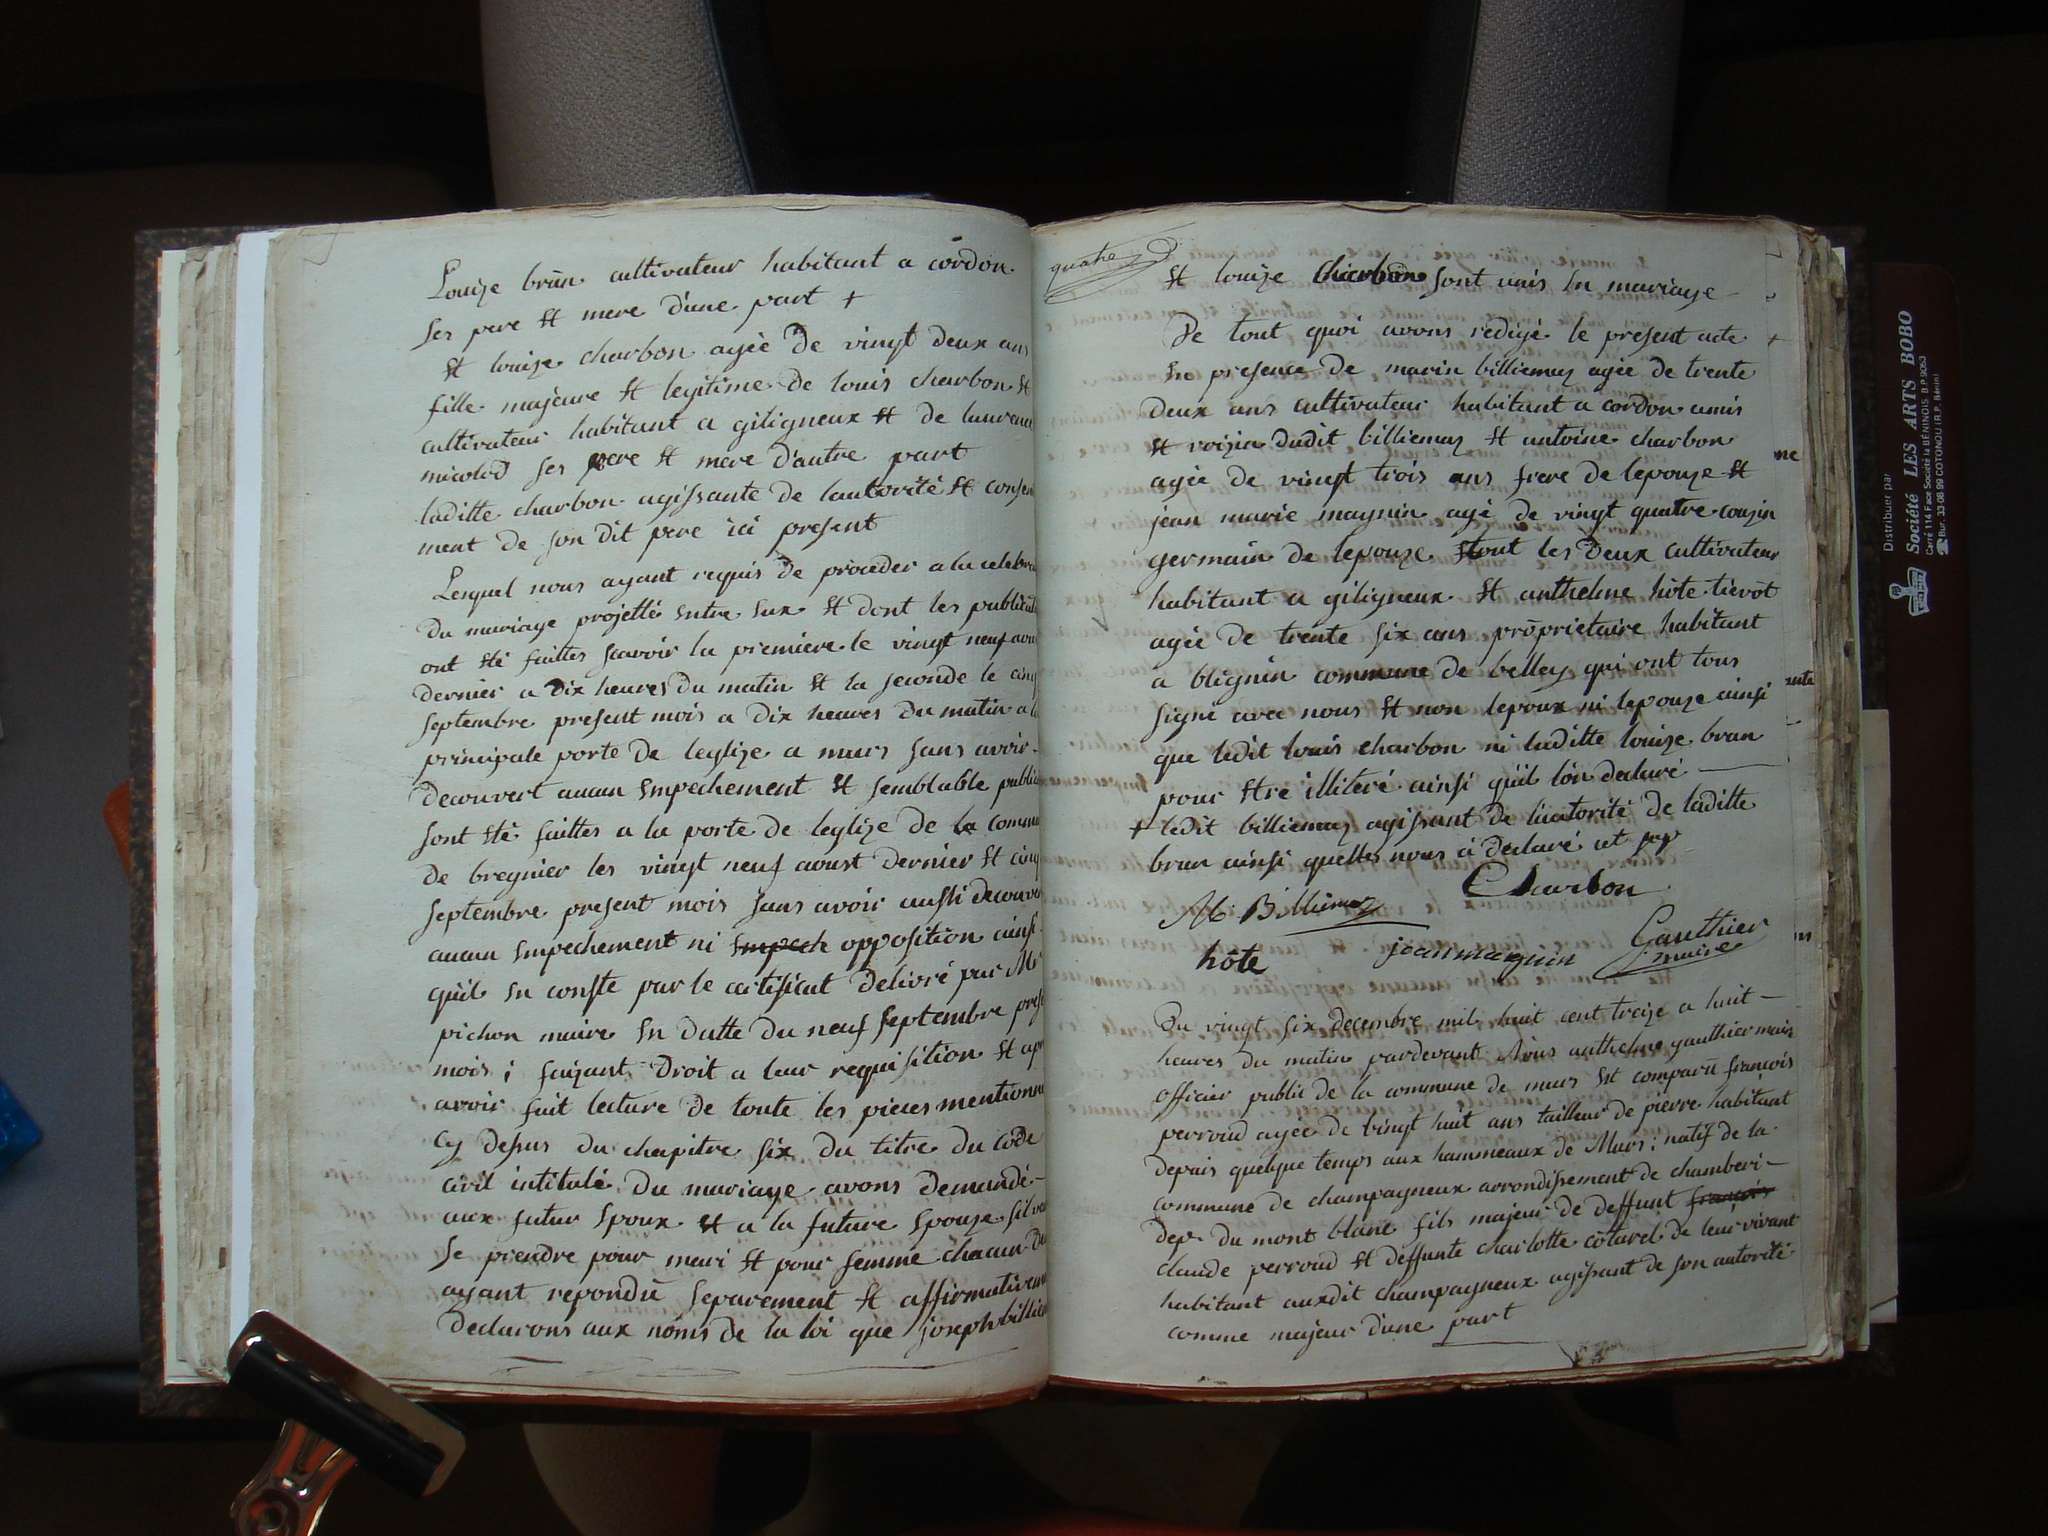 Louize brun cultivateur habitant a cordon
ses pere Et mere d'une part +
Et louize charbon agée De vingt deux ans
fille majeure Et legitime De louis charbon Et
cultivateur habitant a giligneux Et de laurence
micolod ses pere Et mere D'autre part
laditte charbon agissante de lautorité Et consen
ment de son dit pere ici present
Lesquel nous ayant requis de proceder a la celebra
Du mariage projetté Entre Eux Et dont les publicati
ont Eté faittes scavoir la premiere le vingt neuf aou
Dernier a Dix heures Du matin Et la seconde le cinq
septembre present mois a Dix heures Du matin a la
principale porte De leglize a murs sans avoir
Decouvert aucun Empechement Et semblable public
sont Eté faittes a la porte de leglize de la commu
De bregnier les vingt neuf aoust Dernier Et cinq
septembre present mois sans avoir aussi decouver
aucun Empechement ni Empech opposition ainsi
quil En conste par le certificat Delivré par Mr
pichon maire En datte Du neuf septembre prese
mois ; faizant Droit a leur requisition Et apr
avoir fait lecture De toute les pieces mentionné
Cy dessus du chapitre six Du titre Du code
civil intitulé Du mariage avons Demandé
aux futur Epoux Et a la future Epouze sil veu
Se prendre pour mari Et pour femme chacun De
ayant repondu separement Et affirmativem
Declarons aux noms de la loi que joseph billiem
quatre
Et louize Charbon sont unis En mariage
De tout quoi avons redigé le present acte +
En presence De marin billiemaz agée De trente
Deux ans cultivateur habitant a cordon amis
Et voisin dudit billiemaz Et antoine charbon
agée de vingt trois ans frere de lepouze Et
jean marie magnin agé de vingt quatre couzin
germain de lepouze Et tout les Deux cultivateur
habitant a giligneux Et anthelme hôte tievot
agée de trente six ans proprietaire habitant
a blignin commune de belley qui ont tous
signé avec nous Et non lepoux ni lepouze ainsi
que ledit louis charbon ni laditte louize brun
pour Etre illiteré ainsi quil lon declaré
+ ledit billiemaz agissant de lautorité De laditte
brun ainsi quelles nous a declaré
Charbon
M. Billiemaz
Gauthier
hôte jean magnin maire
Du vingt six decembre mil huit cent treize a huit
heures Du matin pardevant Nous anthelme gauthier maire
officier public de la commune de murs Est comparu françois
perroud agée de vingt huit ans tailleur de pierre habitant
depuis quelque temps aux hammeaux de Murs : natif de la
commune de champagneux arrondissement de chamberi
Dep. du mont blanc fils majeur de deffunt françois
claude perroud Et deffunte charlotte côturel de leur vivant
habitant auxdit champagneux agissant de son autorité
comme majeur d'une part
Distribuer par
Société LES ARTS BOBO
Carré 114 Face Société la BÉNINOIS B.P. 9053
Bur. 33 08 99 COTONOU (R.P. Bénin)